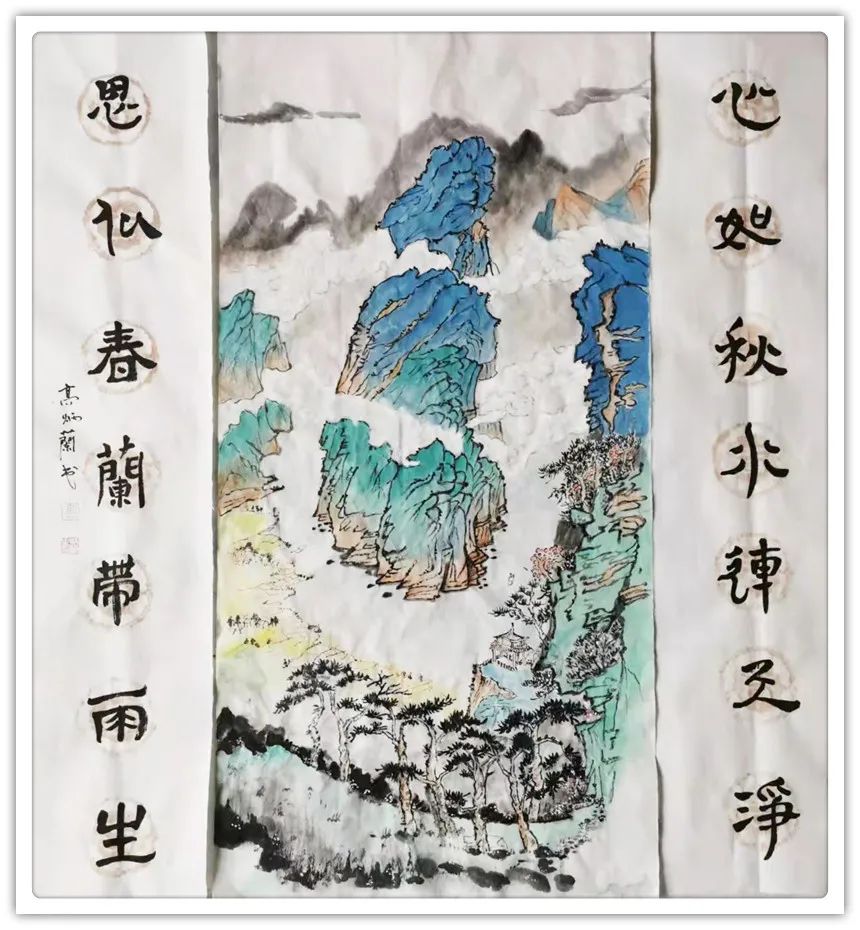 心如秋水連天淨
思似春蘭帶雨生
高炳蘭书